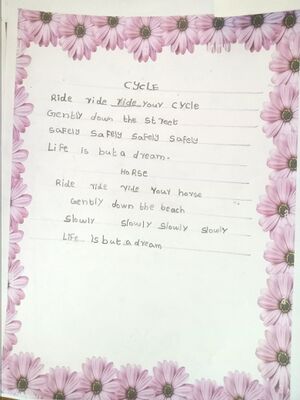 CYCLE
Ride ride ride Your cycle
Gently down the street
safely safely safely safely
Life is but a dream.
HORSE
Ride ride ride Your horse
Gently down the beach
slowly slowly slowly slowly
Life Is but a dream